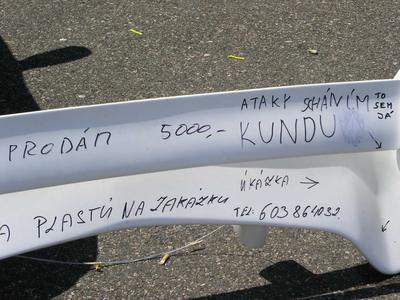 PRODÁM 5000,-
ATAKY SHÁNÍM
KUNDU
TO
SEM
JÁ
A PLASTŮ NA ZAKÁZKU
UKÁZKA →
TEL: 603864032